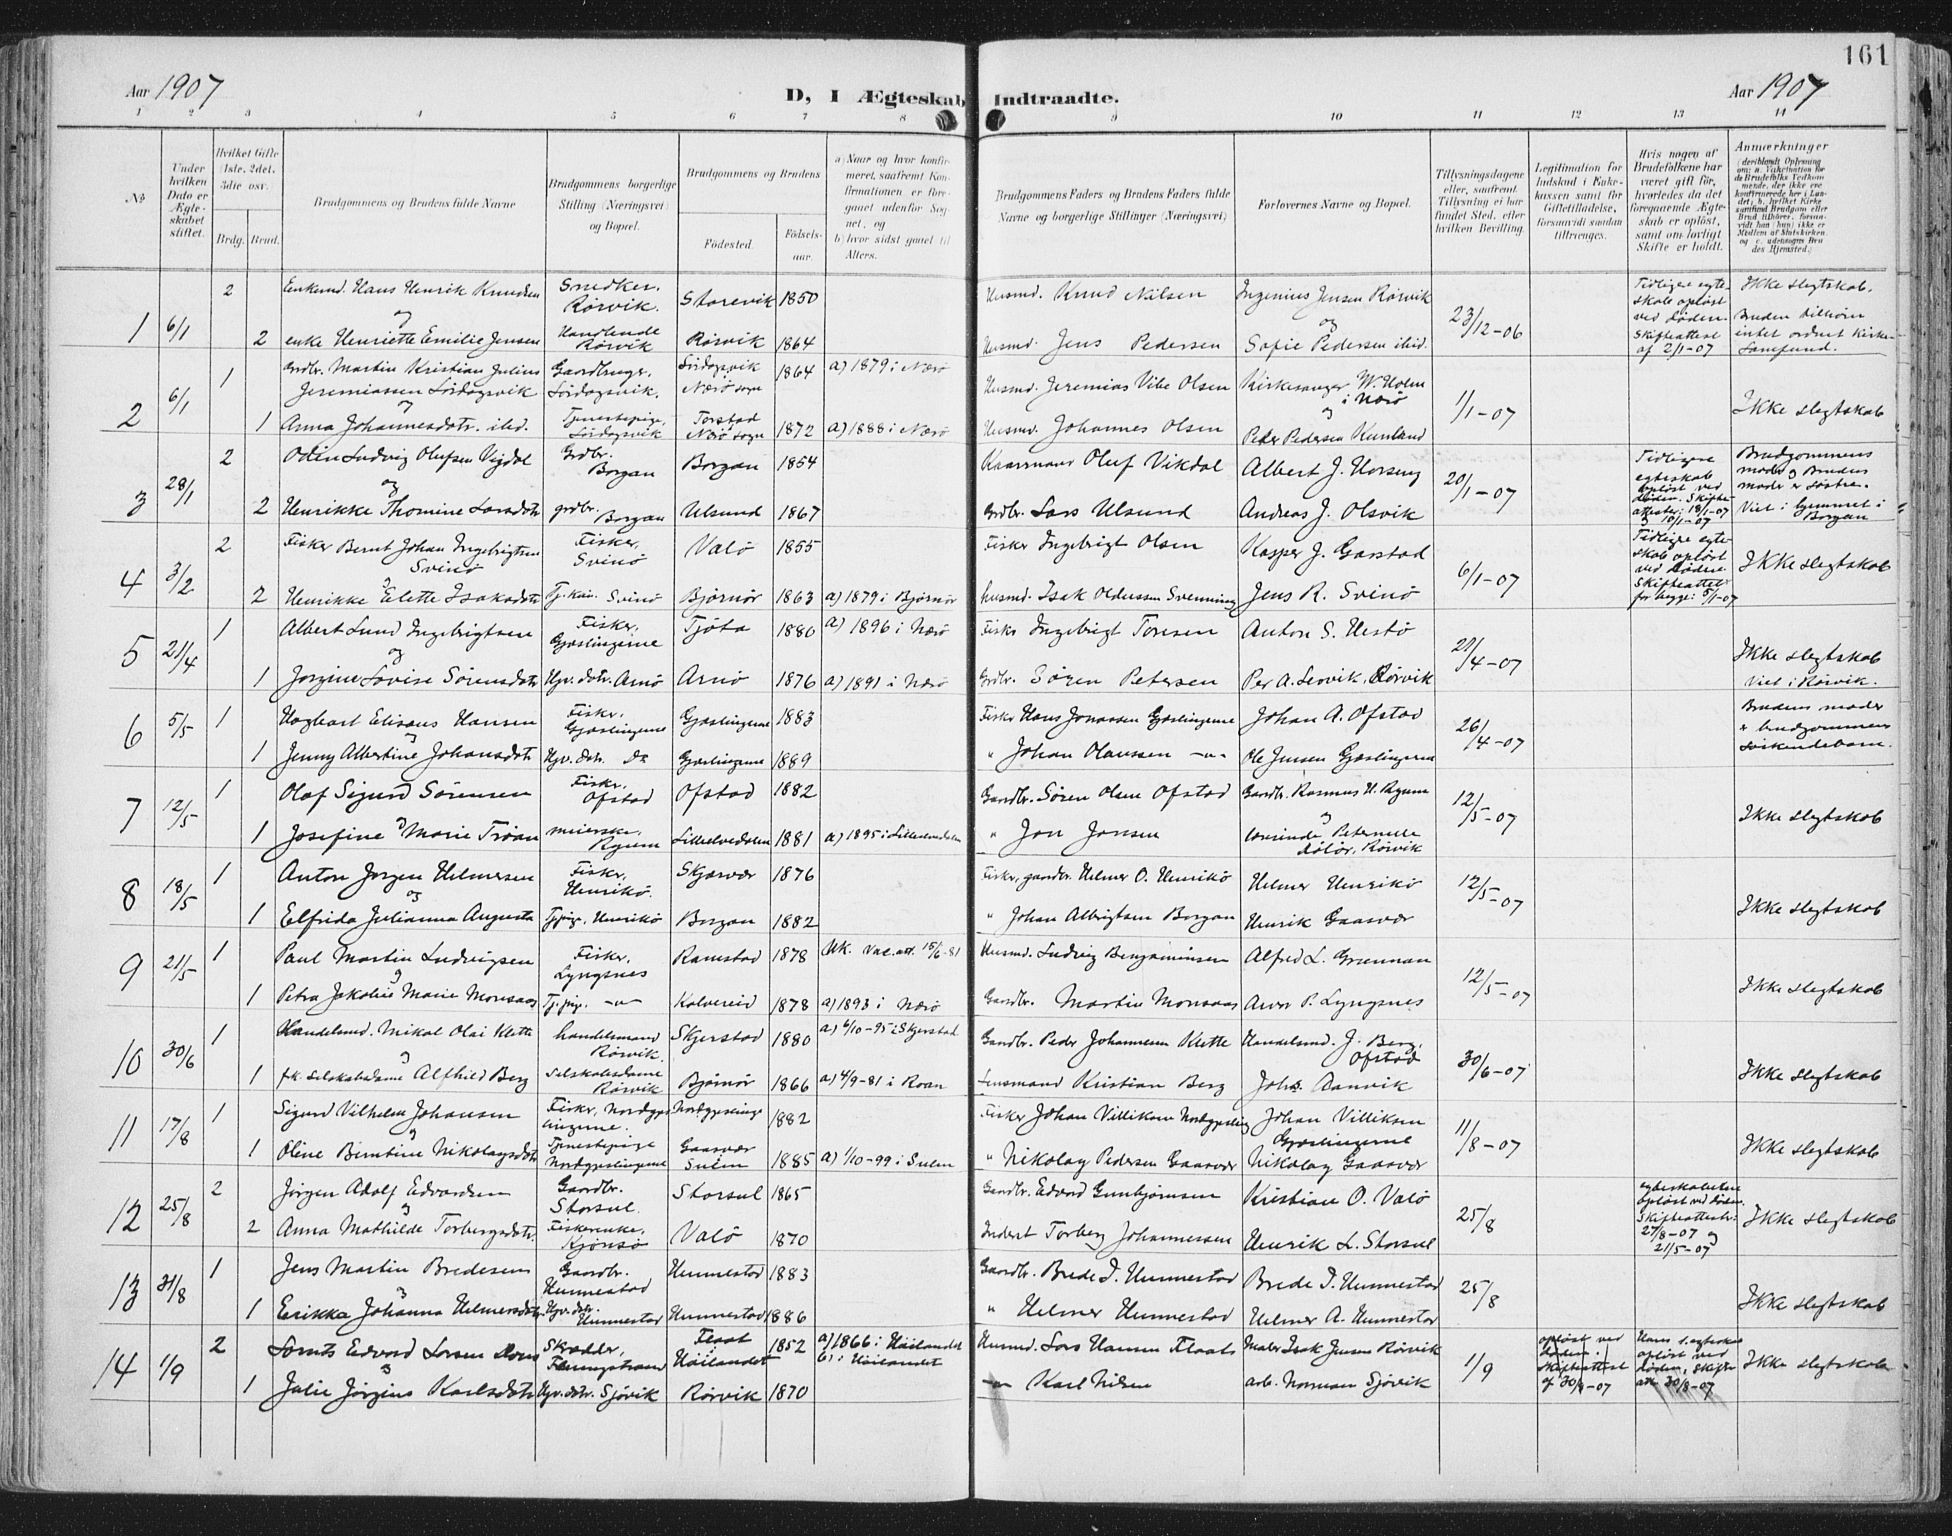 161
Aar 1907
D, I Ægteskab Indtraadte.
Aar 1907
1 2 3 4 5 6 7 8 9 10 11 12 13 14
No
Under hvilken Dato er Ægteskabet stiftet.
Hvilket Gifte (1ste, 2det, 3die osv.
Brdg. Brud.
Brudgommens og Brudens fulde Navne
Brudgommens borgerlige Stilling (Næringsvei) og Bopæl.
Brudgommens og Brudens
Fødested.
Fødselsaar.
a) Naar og hvor konfirmeret, saafremt Konfirmationen er foregaaet udenfor Sognet, og
b) hvor sidst gaaet til Alters.
Brudgommens Faders og Brudens Faders fulde Navne og borgerlige Stillinger (Næringsvei)
Forlovernes Navne og Bopæl.
Tillysningsdagene eller, saafremt Tillysning ei har fundet Sted, efter hvilken Bevilling.
Legitimation for Indskud i Enkekassen samt for Giftetilladelse, forsaavidt saadan tiltrænges.
Hvis nogen af Brudefolkene har været gift før, hvorledes da det foregaaende Ægteskab er opløst, samt om lovligt Skifte er holdt.
Anmærkninger
1 6/1 2 Enkemd. Hans Henrik Knudsen Snedker, Rørvik Storevik 1850 Husmd. Knud Nilsen Ingenius Jensen Rørvik 23/12-06 Tidligere egteskab opløst ved døden. Skifteattest af 2/1-07 Ikke slegtskab. Bruden tilhører intet ordnet Kirkesamfund.
og
2 enke Henriette Emilie Jensen Handlende Rørvik Rørvik 1864 Husmd. Jens Pedersen og Sofie Pedersen ibid.
2 6/1 1 Grdbr. Martin Kristian Julius Jeremiassen Lördagsvik Gaardbruger, Lördagsvik. Lördagsvik Nærö sogn 1864 a) 1879 i Nærö Husmd. Jeremias Vibe Olsen Kirkesanger W. Holm i Nærö 1/1-07 Ikke slegtskab
og
1 Anna Johannesdatr. ibid. Tjenestepige, Lördagsvik Torstad Nærö sogn 1872 a) 1888 i Nærö Husmd. Johannes Olsen og Peder Pedersen
3 28/1 2 Odin Ludvig Olufsen Vigdal Grdbr. Borgan Borgan 1854 Oluf Vikdal Albert J. Horseng 20/1-07 Tidligere egteskab opløst ved døden. Skifteattester: 18/1-07 og 10/1-07 Brudgommens moder og Brudens moder er søstre. Viet i hjemmet i Borgan
og
2 Henrikke Thomine Larsdatr grdbr. Borgan Ulsund 1867 Grdbr. Lars Ulsund Andreas J. Olsvik
4 3/2 2 Fisker Bernt Johan Ingebrigtsen Svinö Fisker, Svinö Valö 1855 Fisker Ingebrigt Olsen Kasper J. Garstad 6/1-07 Tidligere egteskab opløst ved døden. Skifteattest for begge: 5/1-07 Ikke slegtskab
og
2 Henrikke Elette Isaksdatr Svinö Bjørnör 1863 a) 1879 i Bjørnör husmd. Isak Jens R. Svinö
5 21/4 1 Albert Lund Ingebrigtsen Fisker, Gjæslingerne Tjøta 1880 a) 1896 i Nærö Fisker Ingebrigt Toresen Anton S. Hestö 21/4-07 Ikke slegtskab Viet i Rørvik.
og
1 Jorgine Lovise Sörensdatr Hjv. datr. Arnö Arnö 1876 a) 1891 i Nærö Grdbr. Sören Petersen Per A. Leovik, Rørvik
6 5/5 1 Hagbart Elisæus Hansen Fisker, Gjæslingerne Gjæslingerne 1883 Fisker Hans Jonassen Gjæslingerne Johan A. Ofstad 26/4-07 Brudens moder er brudgommens søskendebarn.
og
1 Jenny Albertine Johansdatr Hjv. datr. Do Gjæslingerne 1889 " Johan Olaussen -"- Ole Jensen Gjæslingerne
7 12/5 1 Olaf Sigurd Sörensen Fisker, Ofstad Ofstad 1882 Gaardbr. Sören Olsen Ofstad Gaardbr. Rasmus H. Ryum 12/5-07 Ikke slegtskab
og
1 Josefine Marie Tröan meierske, Ryum Lilleelvedalen 1881 a) 1895 i Lilleelvedalen " Jon Jonsen og Peternelle Rørvik
8 18/5 1 Anton Jorgen Helmersen Fisker, Henrikö. Skjærvær 1876 Fisker, gaardbr. Helmer O. Henrikö Helmer Henrikö 12/5-07 Ikke slegtskab
og
1 Elfrida Julianna Augusta Tj.pig. Henrikö Borgan 1882 " Johan Albrigtsen Borgan Henrik Gaasvær
9 21/5 1 Paul Martin Ludvigsen Fisker, Lyngsnes Ramstad 1878 Uk. Vac.att. 15/6-81 Husmd. Ludvig Benjaminsen Alfred L. Grønnan 12/5-07 Ikke slegtskab
og
1 Petra Jakobine Marie Monsaas Tj.pig. -"- Kalvereid 1878 a) 1893 i Nærö Gaardbr. Martin Monsaas Aron P. Lyngsnes
10 30/6 1 Handelsmd. Mikal Olai Klette handelsmand Rørvik. Skjerstad 1880 a) 1/10-95 i Skjerstad Gaardbr. Peder Johannesen Klette Handelsmd. J. Berg, Ofstad 30/6-07 Ikke slegtskab
og
1 fk. Selskabsdame Alfhild Berg selskabsdame Rørvik Bjørnör 1866 a) 4/9-81 i Roan Lensmand Kristian Berg Johs. Aanvik
11 17/8 1 Sigurd Vilhelm Johansen Fisker, Nordgjæslingerne. Nordgjæslinge 1882 Fisker Johan Villiksen Nordgjæsling Johan Villiksen Gjæslingerne 11/8-07 Ikke slegtskab
og
1 Oline Berntine Nikolaysdatr Tjenestepige Nordgjæslingerne Gaasvær Sulen 1885 a) 1/10-99 i Sulen " Nikolay Pedersen Gaasvær Nikolay Gaasvær
12 25/8 2 Jørgen Adolf Edvardsen Gaardbr. Storsul. Storsul 1865 Gaardbr. Edvard Gunbjørnsen Kristian O. Valö 25/8 egteskaberne opløst ved døden. Skifteattester: 27/8-07 og 21/5-07 Ikke slegtskab
og
2 Anna Mathilde Torbergsdatr. Fiskerenke, Kjönsö Valö 1870 Inderst Torberg Johannessen Henrik L. Storsul
13 31/8 1 Jens Martin Bredesen Gaardbr. Hunnestad Hunnestad 1883 Gaardbr. Brede I. Hunnestad Brede I. Hunnestad 25/8 Ikke slegtskab
og
1 Erikka Johanna Helmersdatr Hjv. datr. Hunnestad Hunnestad 1886 " Helmer Hunnestad Helmer A. Hunnestad
14 1/9 2 Lorents Edvard Larsen Skrædder, Flaat Höilandet 1852 a) 1866 i Höilandet b) i Höilandet Husmd. Lars Hansen Flaat Maler Isak Jensen Rørvik 1/9 opløst ved døden. Skifteattest af 30/8-07 Hans 1. egteskab opløst ved døden, Skifteatt. 30/8-07 Ikke slegtskab
og
1 Julie Jörgine Karlsdatr Hjv. datr. Sjövik Rørvik 1870 -"- Karl Nilsen arb. Norman Sjövik